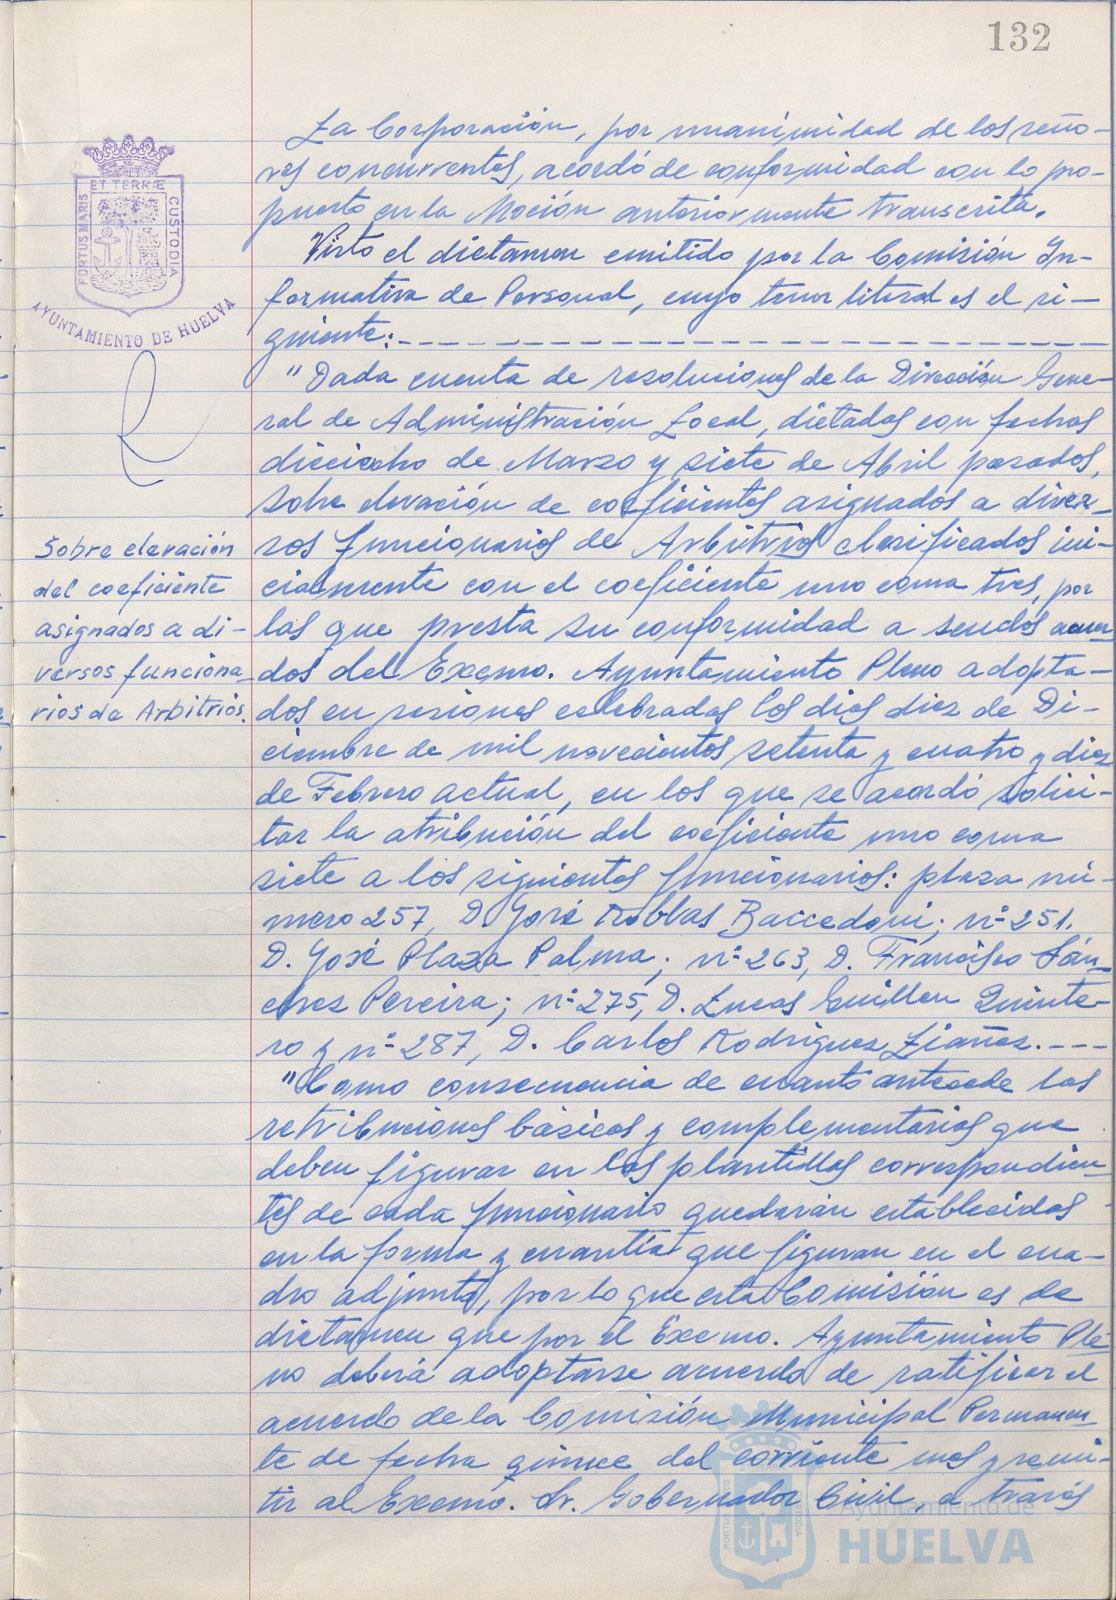 132
La Corporación, por unanimidad de los seño-
res concurrentes, acordó de conformidad con lo pro-
puesto en la Moción anteriormente transcrita.
Visto el dictamen emitido por la Comisión In-
formativa de Personal, cuyo tenor literal es el si-
guiente:
"Dada cuenta de resoluciones de la Dirección Gene-
ral de Administración Local, dictadas con fechas
dieciocho de Marzo y siete de Abril pasados,
sobre elevación de coeficientes asignados a diver-
sos funcionarios de Arbitrios clasificados ini-
cialmente con el coeficiente uno coma tres, por
las que presta su conformidad a sendos acuer
dos del Excmo. Ayuntamiento Pleno adopta-
dos en sesiones celebradas los dias diez de Di-
ciembre de mil novecientos setenta y cuatro y diez
de Febrero actual, en los que se acordó solici-
tar la atribución del coeficiente uno coma
siete a los siguientes funcionarios: plaza nú-
mero 257, D. José Robles Baccedoni; nº 251.
D. José Plaza Palma; nº 263, D. Francisco Sán-
chez Pereira; nº 275, D. Lucas Guillen Quinte-
ro y nº 287, D. Carlos Rodriguez Liañez.---
"Como consecuencia de cuanto antecede las
retribuciones básicas y complementarias que
deben figurar en las plantillas correspondien-
tes de cada funcionario quedarán establecidas
en la forma y cuantía que figuran en el cua-
dro adjunto, por lo que esta Comisión es de
dictamen que por el Excmo. Ayuntamiento Ple
no deberá adoptarse acuerdo de ratificar el
acuerdo de la Comisión Municipal Permanen-
te de fecha quince del corriente mes y remi-
tir al Excmo. Sr. Gobernador Civil, a través
PORTUS MARIS
ET TERRÆ
CUSTODIA
AYUNTAMIENTO DE HUELVA
Sobre elevación
del coeficiente
asignados a di-
versos funciona-
rios de Arbitrios.
Ayuntamiento de
HUELVA